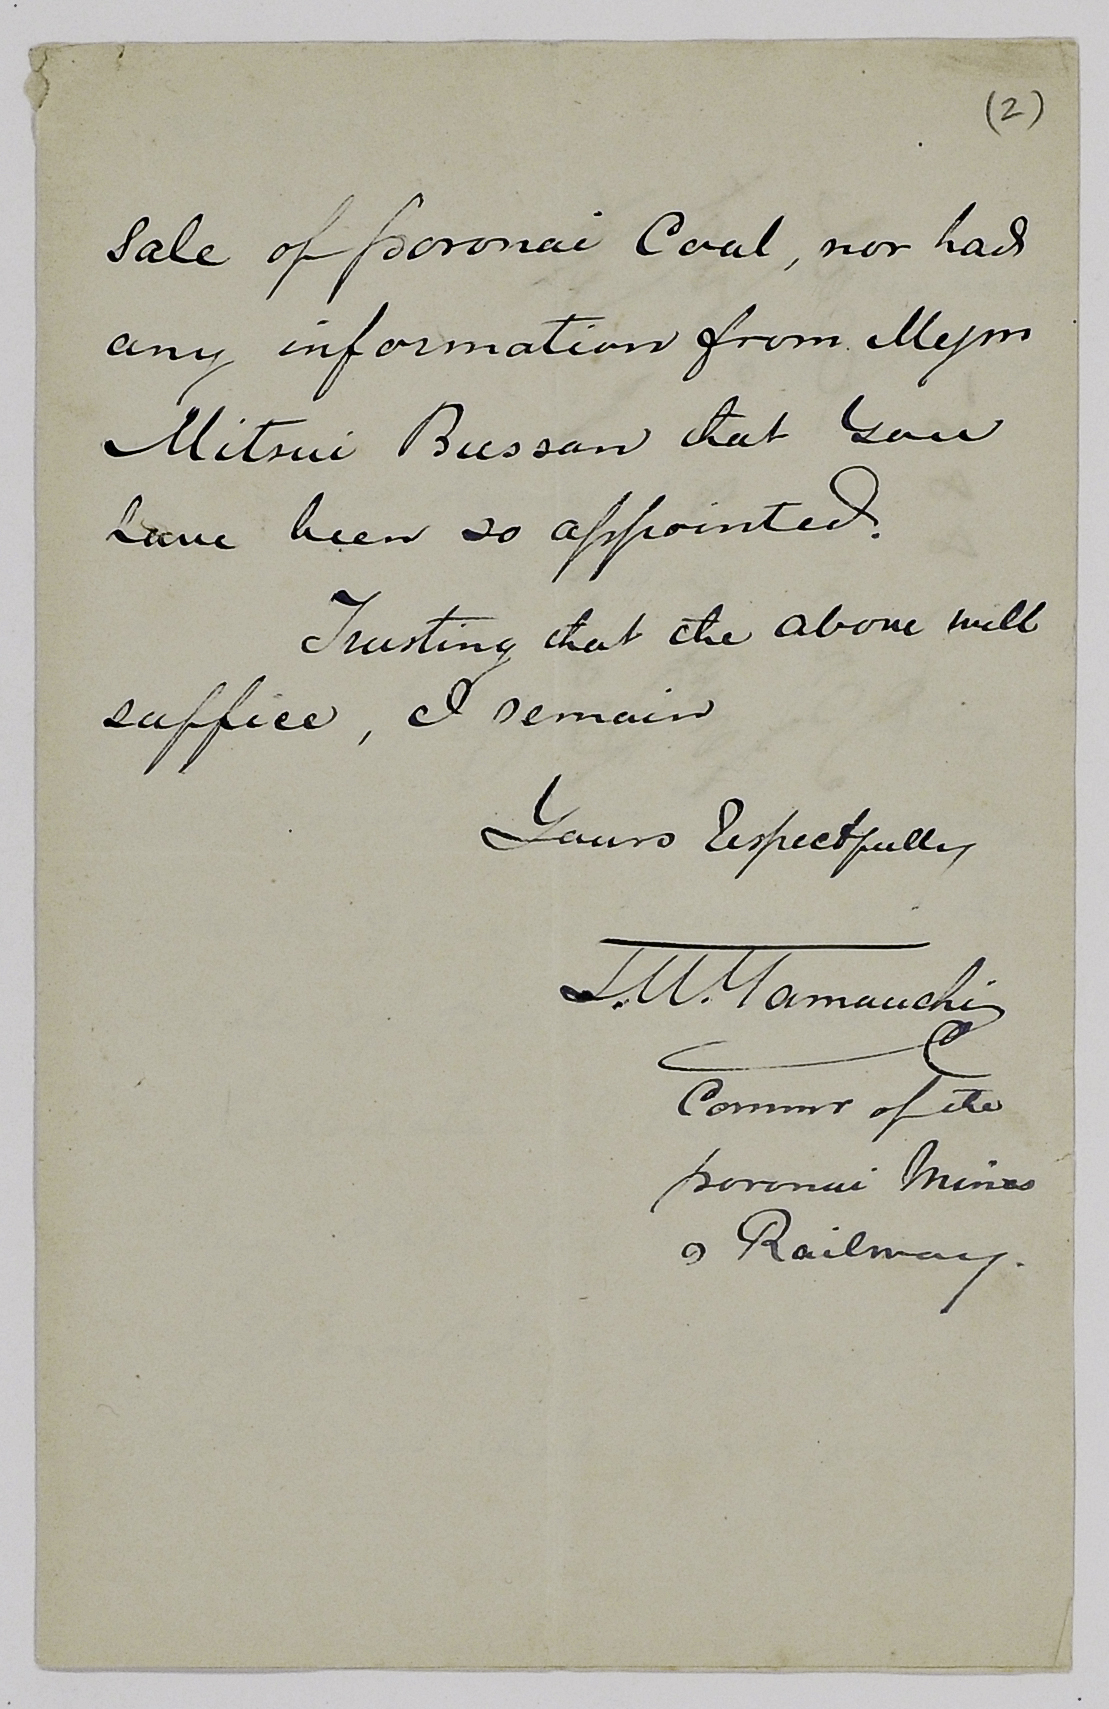 (2)
Sale of poronai Coal, nor had
any information from Messrs
Mitsui Bussan that you
have been so appointed.
Trusting that the above will
suffice, I remain
Yours Respectfully
T. W. Yamauchi
Commr of the
poronai Mines
& Railway.